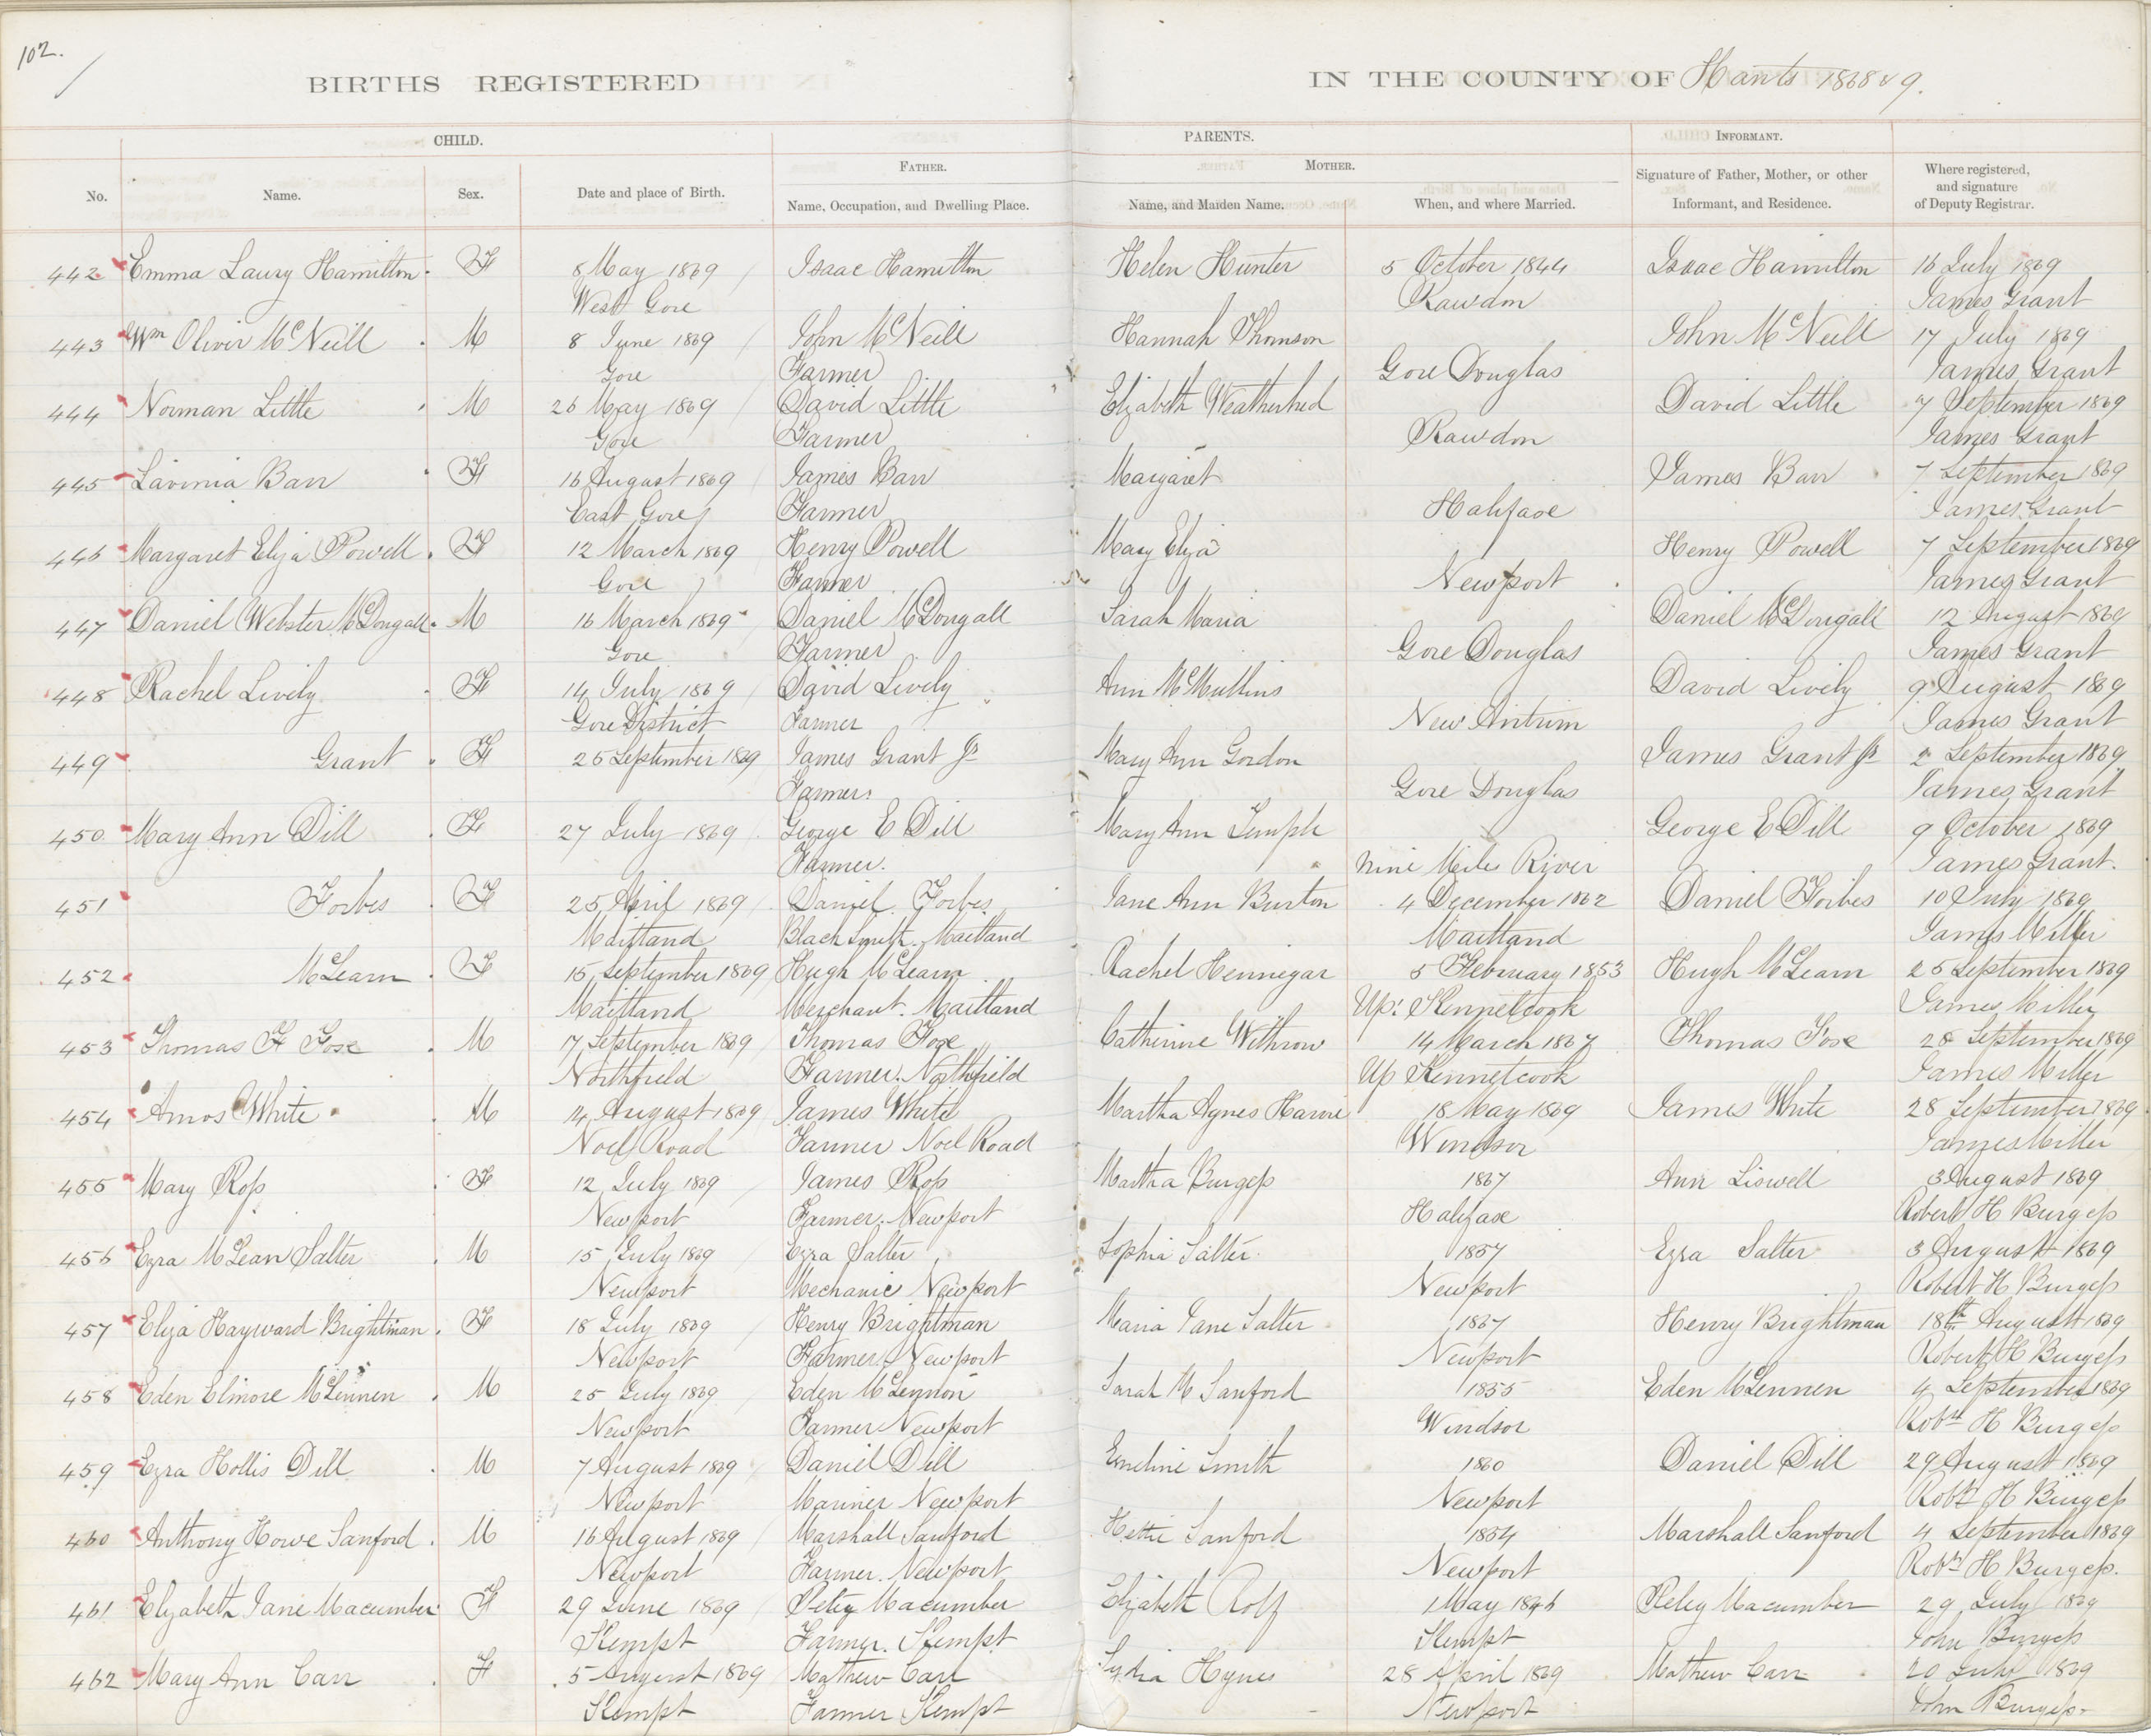 102.
BIRTHS REGISTERED IN THE COUNTY OF Hants 1868 & 9.
CHILD. PARENTS. INFORMANT.
FATHER. MOTHER.
No. Name. Sex. Date and place of Birth. Name, Occupation, and Dwelling Place. Name, and Maiden Name. When, and where Married. Signature of Father, Mother, or other Informant, and Residence. Where registered, and signature of Deputy Registrar.
442 Emma Laury Hamilton F 8 May 1869 Isaac Hamilton Helen Hunter 5 October 1844 Isaac Hamilton 16 July 1869
West Gore Rawdon James Grant
443 Wm Oliver McNeill M 8 June 1869 John McNeill Hannah Thomson John McNeill 17 July 1869
Gore Farmer Gore Douglas James Grant
444 Norman Little M 26 May 1869 David Little Elizabeth Weatherhed David Little 7 September 1869
Gore Farmer Rawdon James Grant
445 Lavinia Barr F 16 August 1869 James Barr Margaret James Barr 7 September 1869
East Gore Farmer Halifax James Grant
446 Margaret Eliza Powell F 12 March 1869 Henry Powell Mary Eliza Henry Powell 7 September 1869
Gore Farmer Newport James Grant
447 Daniel Webster McDougall M 16 March 1869 Daniel McDougall Sarah Maria Daniel McDougall 12 August 1869
Gore Farmer Gore Douglas James Grant
448 Rachel Lively F 14 July 1869 David Lively Ann McMullins David Lively 9 August 1869
Gore District Farmer New Antrim James Grant
449 Grant F 25 September 1869 James Grant Jr Mary Ann Gordon James Grant Jr 2 September 1869
Farmer Gore Douglas James Grant
450 Mary Ann Dill F 27 July 1869 George E Dill Mary Ann Temple George E Dill 9 October 1869
Farmer. Nine Mile River James Grant.
451 Forbes F 25 April 1869 Daniel Forbes Jane Ann Burton 4 December 1862 Daniel Forbes 10 July 1869
Maitland Black Smith. Maitland Maitland James Miller
452 McLearn F 15 September 1869 Hugh McLearn Rachel Hennegar 5 February 1853 Hugh McLearn 25 September 1869
Maitland Merchant. Maitland Up: Kennetcook James Miller
453 Thomas F Fox M 17 September 1869 Thomas Fox Catherine Withrow 14 March 1867 Thomas Fox 28 September 1869
Northfield Farmer. Northfield Up Kennetcook James Miller
454 Amos White M 14 August 1869 James White Martha Agnes Harvie 18 May 1869 James White 28 September 1869
Noel Road Farmer Noel Road Windsor James Miller
455 Mary Ross F 12 July 1869 James Ross Martha Burgess 1867 Ann Liswell 3 August 1869
Newport Farmer. Newport Halifax Robert H Burgess
456 Ezra McLean Salter M 15 July 1869 Ezra Salter Sophia Salter 1857 Ezra Salter 3 August 1869
Newport Mechanic Newport Newport Robert H Burgess
457 Eliza Hayward Brightman F 18 July 1869 Henry Brightman Maria Jane Salter 1867 Henry Brightman 18th August 1869
Newport Farmer Newport Newport Robert H Burgess
458 Eden Elmore McLennen M 25 July 1869 Eden McLennon Sarah M Sanford 1855 Eden McLennen 4 September 1869
Newport Farmer Newport Windsor Robt H Burgess
459 Ezra Hollis Dill M 7 August 1869 Daniel Dill Emeline Smith 1860 Daniel Dill 29 August 1869
Newport Mariner Newport Newport Robt H Burgess
460 Anthony Howe Sanford M 16 August 1869 Marshall Sanford Hettie Sanford 1854 Marshall Sanford 4 September 1869
Newport Farmer. Newport Newport Robt H Burgess.
461 Elizabeth Jane Macumber F 29 June 1869 Peleg Macumber Elizabeth Rolf 1 May 1846 Peleg Macumber 29 July 1869
Kempt Farmer. Kempt Kempt John Burgess
462 Mary Ann Carr F 5 August 1869 Mathew Carr Lydia Hynes 28 April 1869 Mathew Carr 20 July 1869
Kempt Farmer Kempt Newport John Burgess